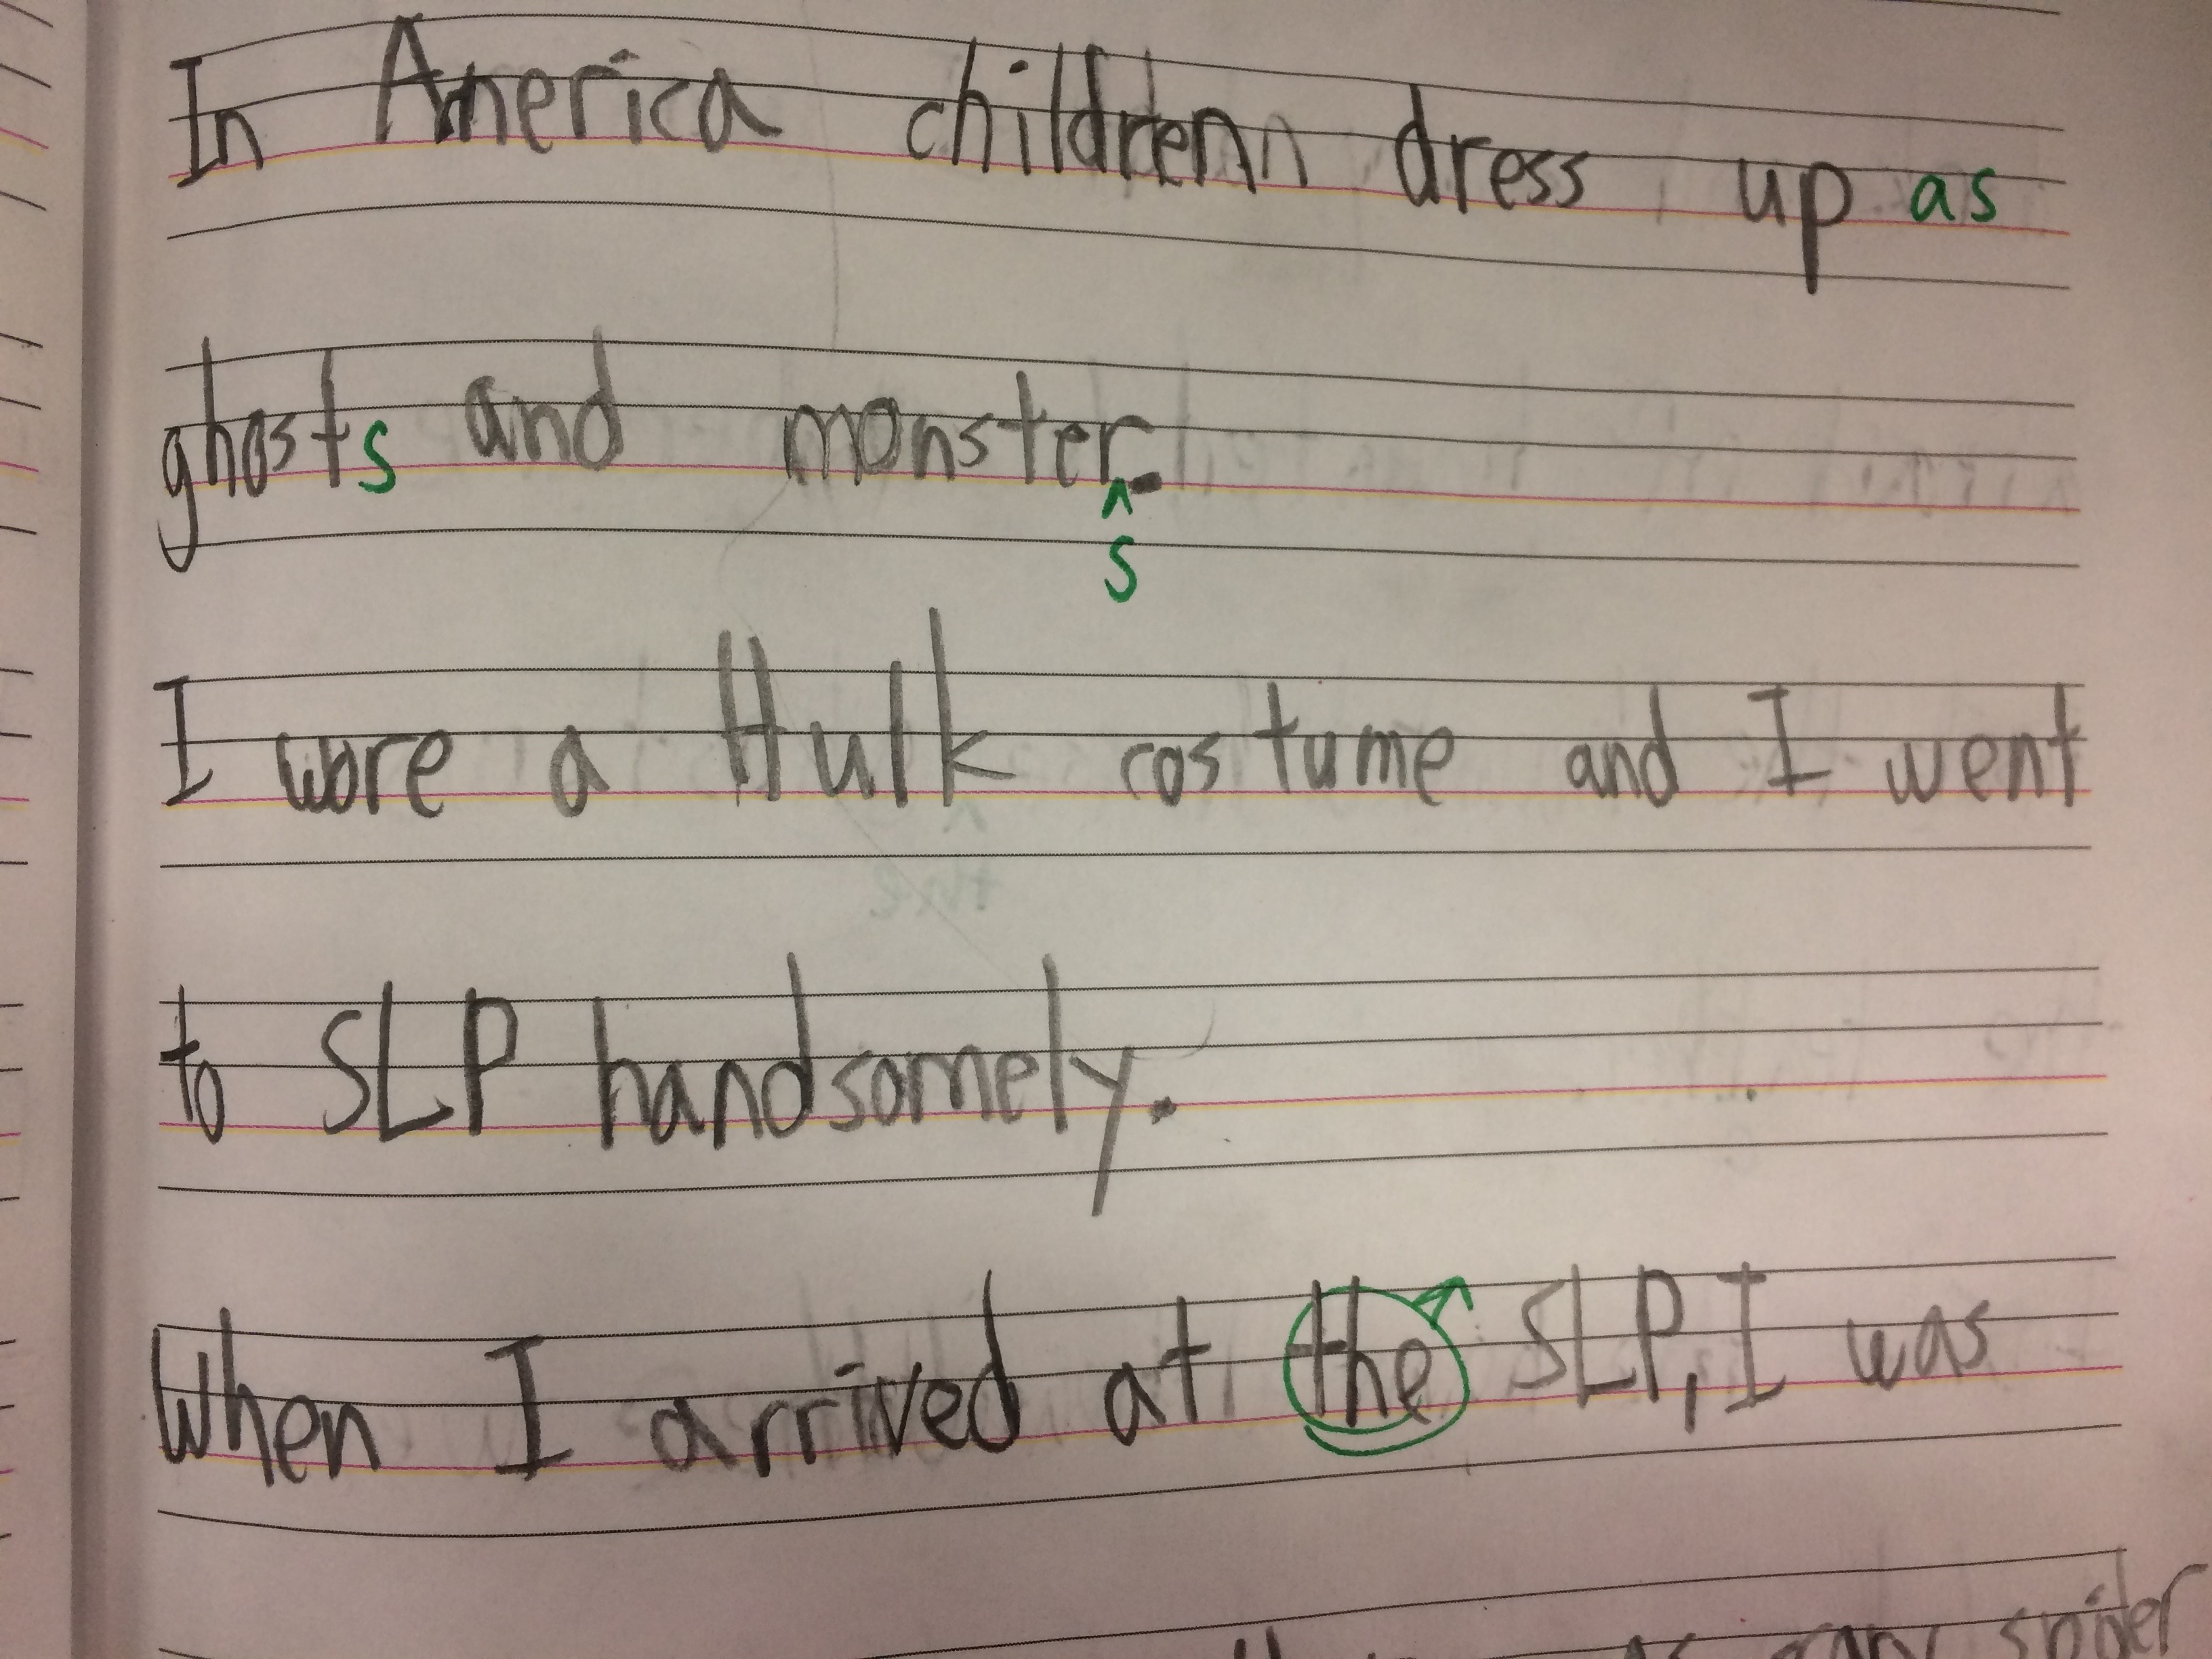 In America children dress up as
ghosts and monster.
s
I wore a Hulk costume and I went
to SLP handsomely.
When I arrived at the SLP, I was
spider